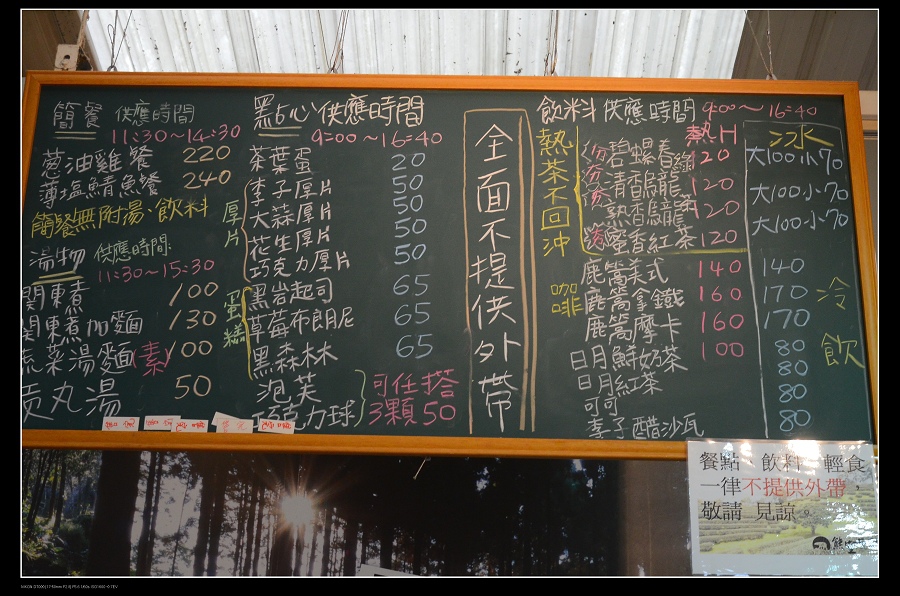 簡餐 供應時間
11:30～14:30
蔥油雞餐 220
薄塩鯖魚餐 240
簡餐無附湯、飲料
湯物 供應時間:
11:30～15:30
關東煮 100
關東煮加麵 130
蔬菜湯麵(素) 100
貢丸湯 50
點心 供應時間
9:00～16:40
茶葉蛋 20
厚片
李子厚片 50
大蒜厚片 50
花生厚片 50
巧克力厚片 50
蛋糕
黑岩起司 65
草莓布朗尼 65
黑森林 65
泡芙
巧克力球
可任搭
3顆50
全面不提供外帶
飲料 供應時間 9:00～16:40
熱H 冰
熱茶不回沖
碧螺春綠 120 大100小70
清香烏龍 120 大100小70
熟香烏龍 120 大100小70
蜜香紅茶 120
咖啡
鹿篙美式 140 140
鹿篙拿鐵 160 170
鹿篙摩卡 160 170
日月鮮奶茶 100 80
日月紅茶 80
可可 80
李子醋沙瓦 80
冷飲
餐點 飲料 輕食
一律不提供外帶，
敬請 見諒。